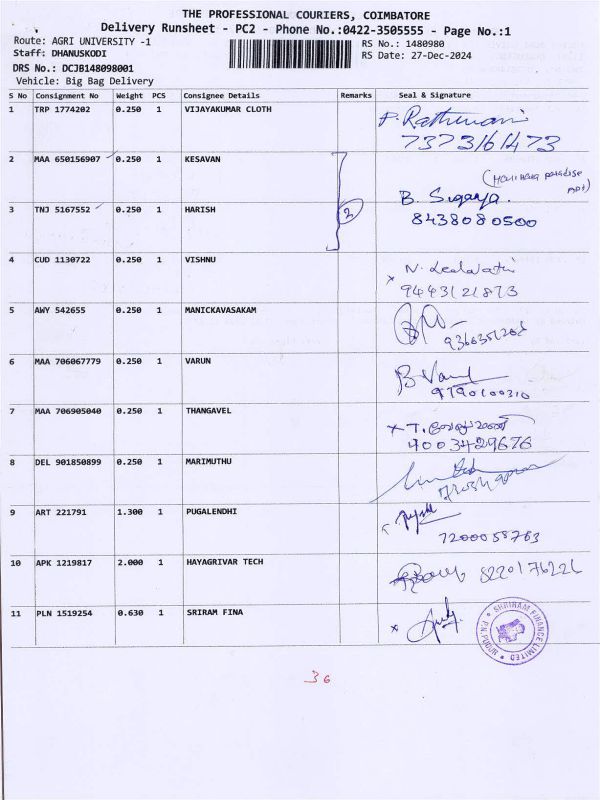 THE PROFESSIONAL COURIERS, COIMBATORE
Delivery Runsheet - PC2 - Phone No.:0422-3505555 - Page No.:1
Route: AGRI UNIVERSITY -1
RS No.: 1480980
Staff: DHANUSKODI
RS Date: 27-Dec-2024
DRS No.: DCJB148098001
Vehicle: Big Bag Delivery
S No Consignment No Weight PCS Consignee Details Remarks Seal & Signature
1 TRP 1774202 0.250 1 VIJAYAKUMAR CLOTH P. Rathinam
7373161473
2 MAA 650156907 0.250 1 KESAVAN
B. Suganya.
3 TNJ 5167552 0.250 1 HARISH 2 8438080500
4 CUD 1130722 0.250 1 VISHNU x N. Leelavathi
9443121873
5 AWY 542655 0.250 1 MANICKAVASAKAM
6 MAA 706067779 0.250 1 VARUN
9790100310
7 MAA 706905040 0.250 1 THANGAVEL x T.
9003429676
8 DEL 901850899 0.250 1 MARIMUTHU
9 ART 221791 1.300 1 PUGALENDHI
7200058763
10 APK 1219817 2.000 1 HAYAGRIVAR TECH 8220176226
11 PLN 1519254 0.630 1 SRIRAM FINA x
SHRIRAM FINANCE LIMITED
P.N.PUDUR
36